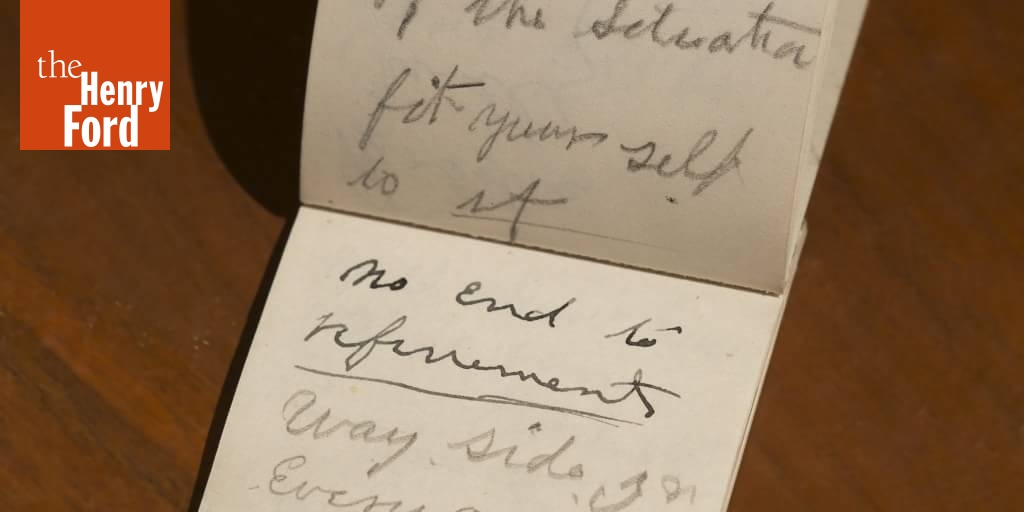 the
Henry
Ford
the Situation
fit your self
to it
no end to
refinements
Way side